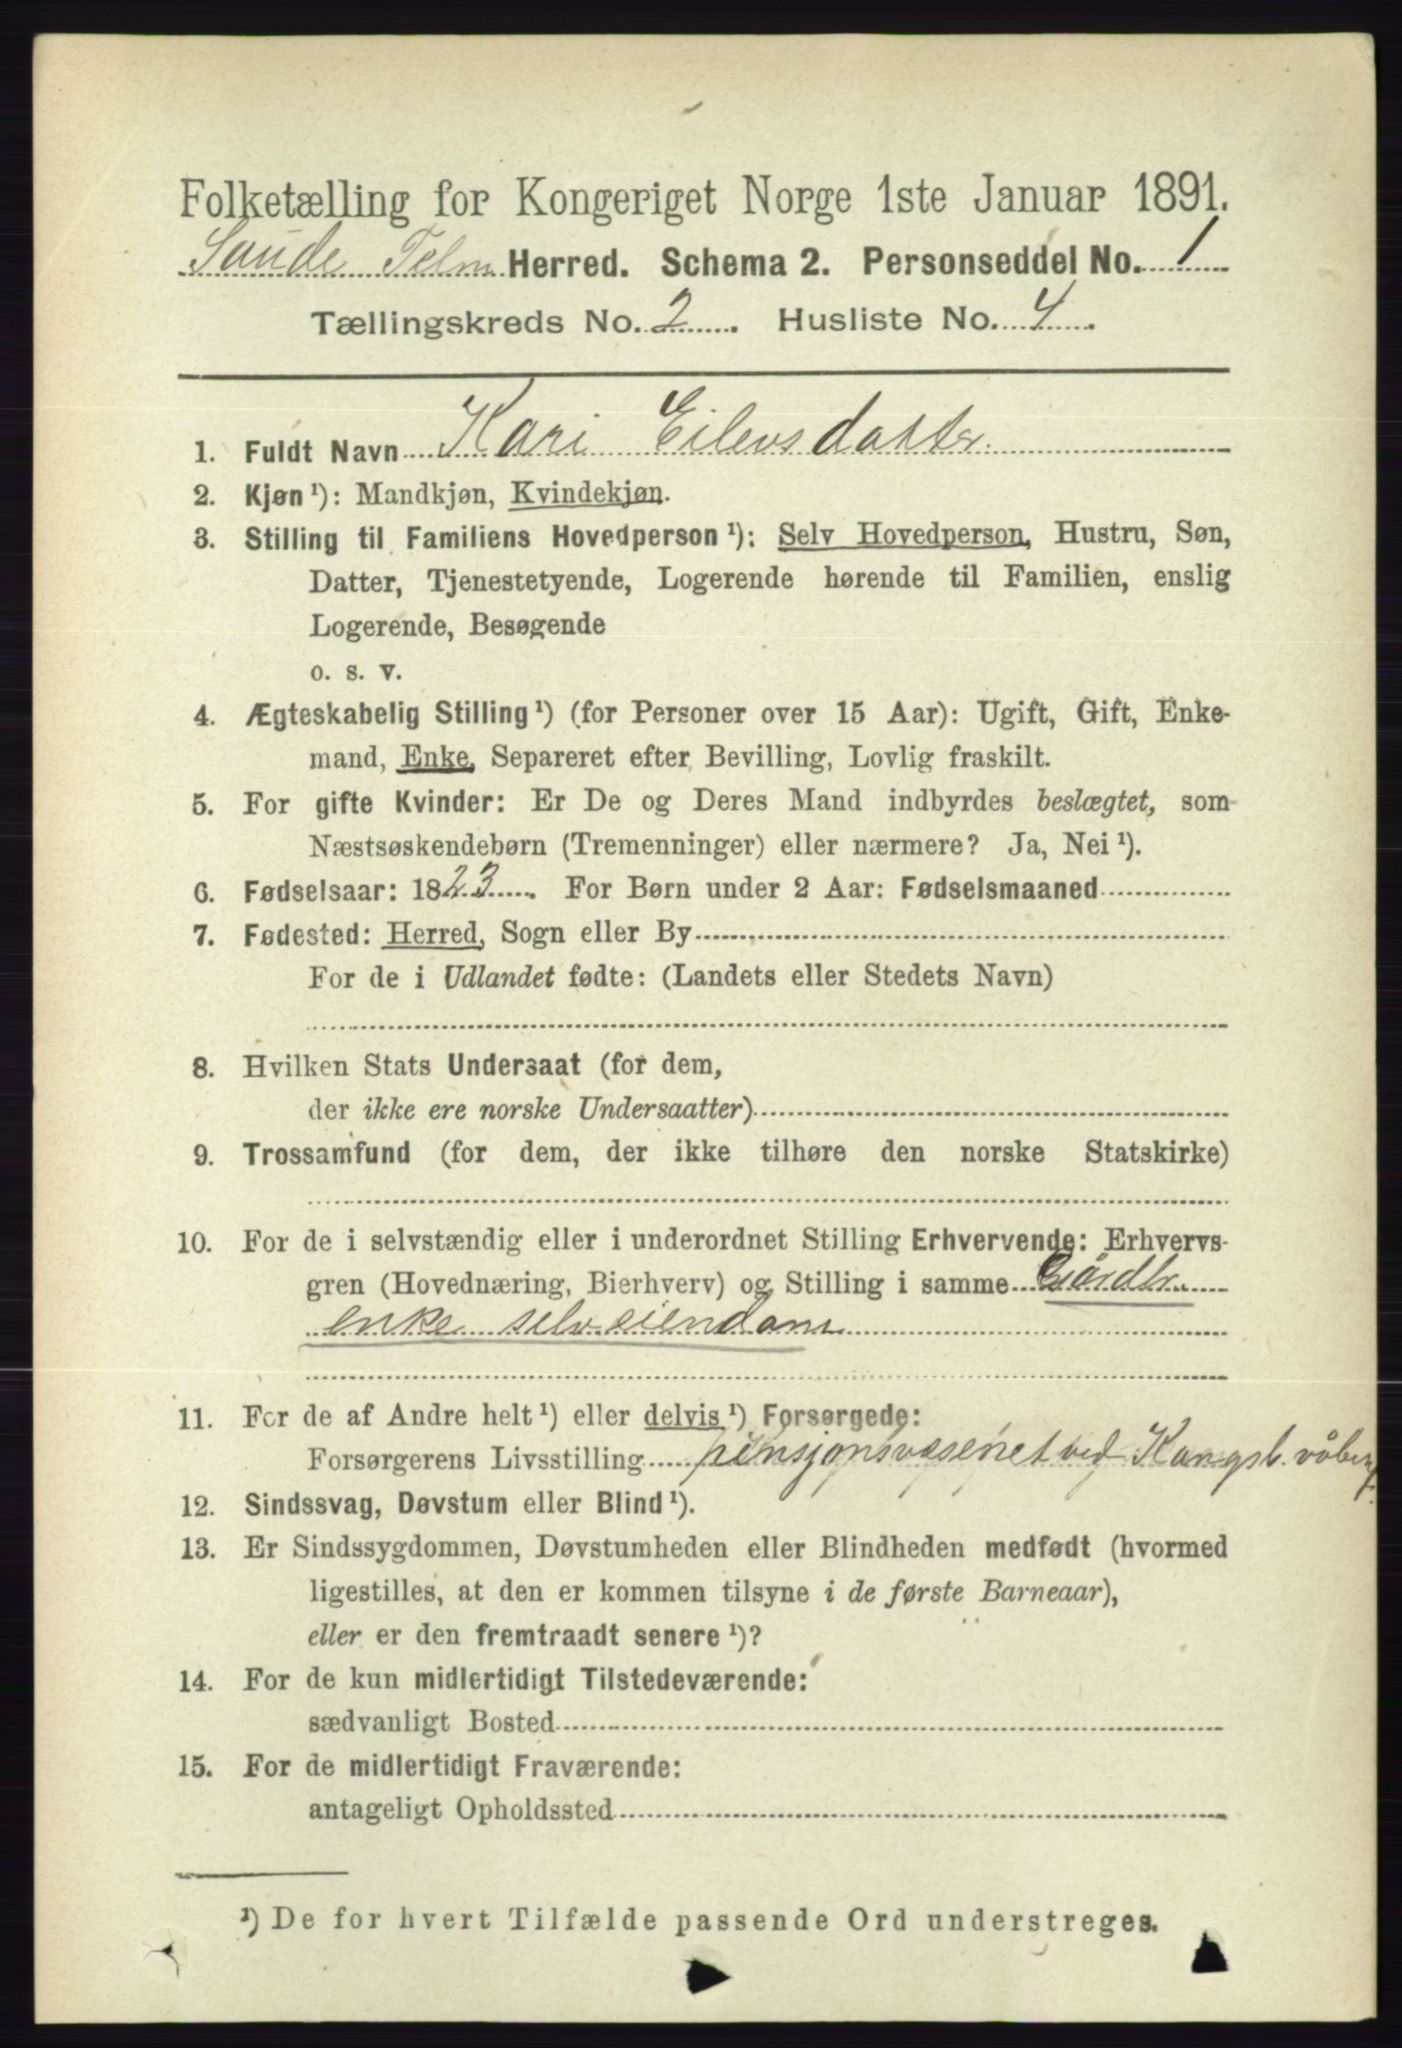 Folketælling for Kongeriget Norge 1ste Januar 1891.
Saude Telm Herred. Schema 2. Personseddel No. 1
Tællingskreds No. 2. Husliste No. 4.
1. Fuldt Navn Kari Eilevsdatter
2. Kjøn¹): Mandkjøn, Kvindekjøn.
3. Stilling til Familiens Hovedperson¹): Selv Hovedperson, Hustru, Søn,
Datter, Tjenestetyende, Logerende hørende til Familien, enslig
Logerende, Besøgende
o. s. v.
4. Ægteskabelig Stilling¹) (for Personer over 15 Aar): Ugift, Gift, Enke-
mand, Enke, Separeret efter Bevilling, Lovlig fraskilt.
5. For gifte Kvinder: Er De og Deres Mand indbyrdes beslægtet, som
Næstsøskendebørn (Tremenninger) eller nærmere? Ja, Nei¹).
6. Fødselsaar: 1823. For Børn under 2 Aar: Fødselsmaaned
7. Fødested: Herred, Sogn eller By
For de i Udlandet fødte: (Landets eller Stedets Navn)
8. Hvilken Stats Undersaat (for dem,
der ikke ere norske Undersaatter)
9. Trossamfund (for dem, der ikke tilhøre den norske Statskirke)
10. For de i selvstændig eller i underordnet Stilling Erhvervende: Erhvervs-
gren (Hovednæring, Bierhverv) og Stilling i samme Gårdbr.
enke selveiendom
11. For de af Andre helt¹) eller delvis¹) Forsørgede:
Forsørgerens Livsstilling pensjonsvæsenet ved Kongsb. våbenf.
12. Sindssvag, Døvstum eller Blind¹).
13. Er Sindssygdommen, Døvstumheden eller Blindheden medfødt (hvormed
ligestilles, at den er kommen tilsyne i de første Barneaar),
eller er den fremtraadt senere¹)?
14. For de kun midlertidigt Tilstedeværende:
sædvanligt Bosted
15. For de midlertidigt Fraværende:
antageligt Opholdssted
¹) De for hvert Tilfælde passende Ord understreges.